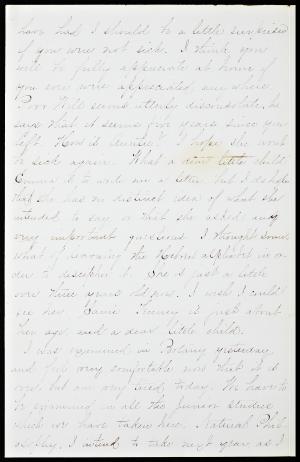 have had I should be a little surprised
if you were not sick. I think you
will be fully appreciated at home if
you ever were appreciated anywhere.
Poor Will seems utterly disconsolate, he
says that it seems five years since you
left. How is I hope she wont
be sick again. What a dear little child
Emma is to write me a letter but I do hate
that she has no distinct idea of what she
intended to say or that she asked any
very important questions. I thought some
what of learning the Hebrew alphabet in or
der to decipher it. She is just a little
over three years old now. I wish I could
see her. Carrie is just about
her age, and a dear little child.
I was examined in Botany yesterday
and feel very comfortable now that it is
over but am very tired, today. We have to
be examined in all the Junior studies
which we have taken here. Natural Phil
osophy, I intend to take next year as I